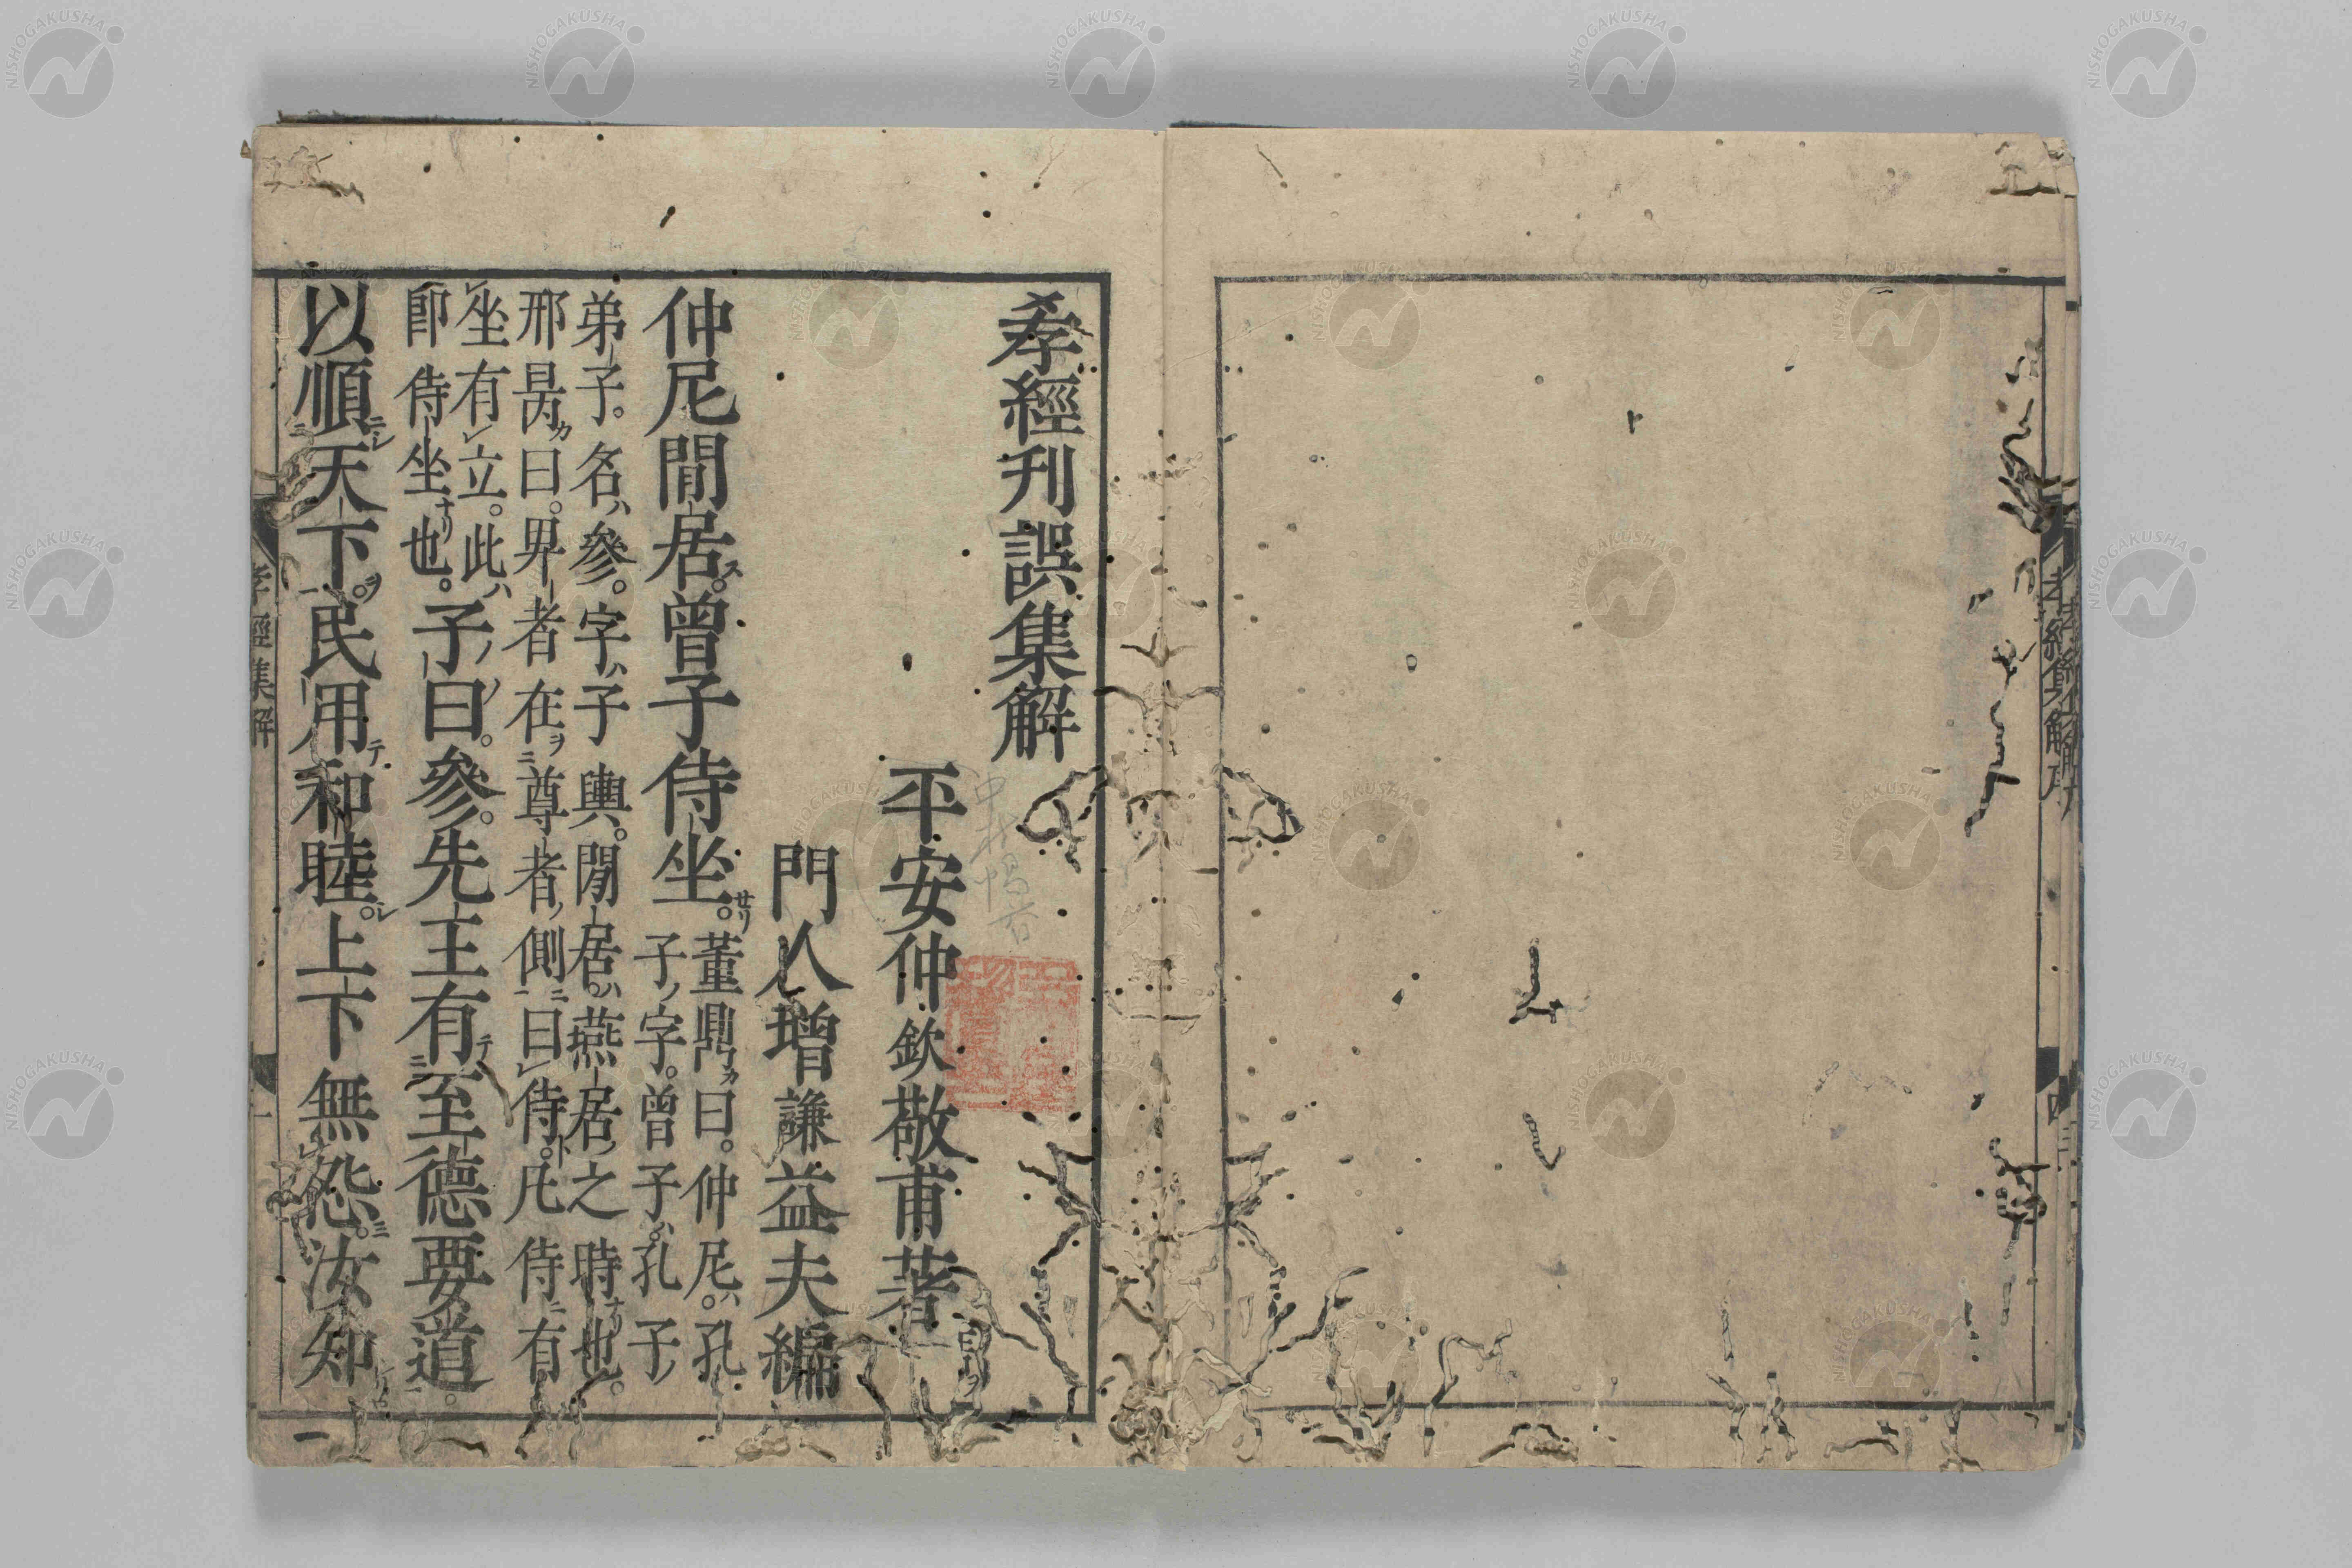 孝經刋誤集解
平安仲欽敬甫著
門人增謙益夫編
仲尼閒居。曾子侍坐。董鼎曰。仲尼。孔
子字。曾子。孔子
弟子。名參。字子輿。閒居。燕居之時也。
邢昺曰。卑者在尊者側曰侍。凡侍有
坐有立。此
卽侍坐也。
子曰。參。先王有至德要道
以順天下。民用和睦。上下無怨。汝知
孝經集解
一
NISHOGAKUSHA